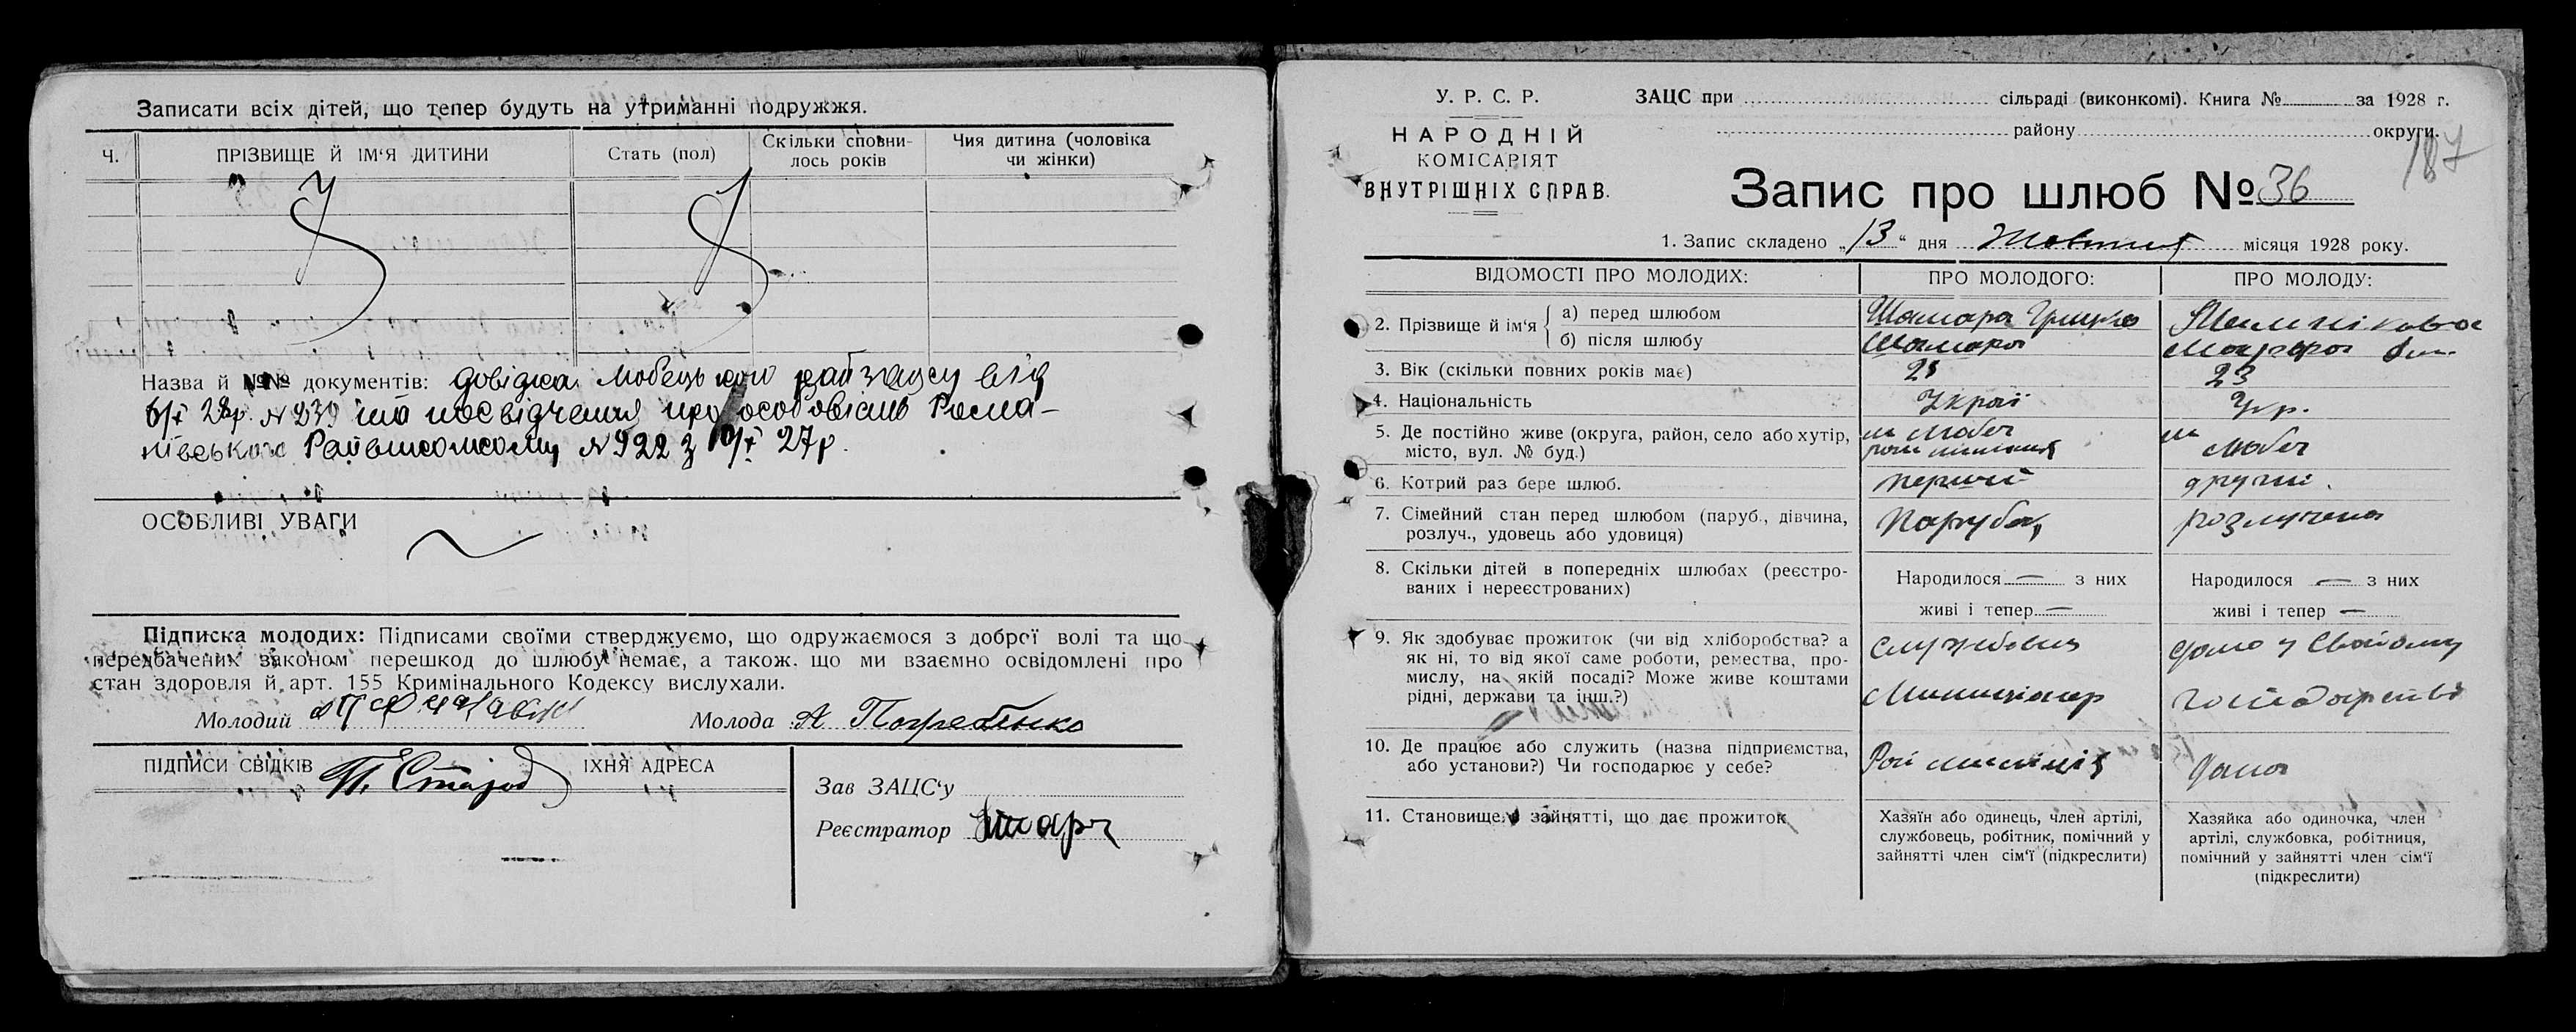 Записати всіх дітей, що тепер будуть на утриманні подружжя.
Ч.
ПРІЗВИЩЕ Й ІМ‘Я ДИТИНИ
Стать (пол)
Скільки сповни-
лось років
Чия дитина (чоловіка
чи жінки)
Назва й №№ документів: довідка Любецького райзагсу від
6/X 28р. №239 та посвідчення про особовість Рома-
нівського Райвиконкому №922 з 10/X 27р.
ОСОБЛИВІ УВАГИ
Підписка молодих: Підписами своїми стверджуємо, що одружаємося з доброї волі та що
передбачених законом перешкод до шлюбу немає, а також. що ми взаємно освідомлені про
стан здоровля й арт. 155 Кримінального Кодексу вислухали.
Молодий
Молода А Погребенко
ПІДПИСИ СВІДКІВ
ЇХНЯ АДРЕСА
Зав ЗАЦС‘у
Реєстратор
У. Р. С. Р.
НАРОДНІЙ
КОМІСАРІЯТ
ВНУТРІШНІХ СПРАВ.
ЗАЦС при сільраді (виконкомі). Книга № за 1928 г.
району округи.
187
Запис про шлюб № 36
1. Запис складено „13“ дня Жовтня місяця 1928 року.
ВІДОМОСТІ ПРО МОЛОДИХ:
ПРО МОЛОДОГО:
ПРО МОЛОДУ:
2. Прізвище й ім‘я
а) перед шлюбом
б) після шлюбу
Шамара Грицко
Шамара
3. Вік (скільки повних років має)
23
4. Національність
Украї
Укр.
5. Де постійно живе (округа, район, село або хутір,
місто, вул. № буд.)
м Любеч
м
Любеч
6. Котрий раз бере шлюб.
перший
другий.
7. Сімейний стан перед шлюбом (паруб., дівчина,
розлуч., удовець або удовиця)
Парубок
розлучена
8. Скільки дітей в попередніх шлюбах (реєстро-
ваних і нереєстрованих)
Народилося — з них
живі і тепер —
Народилося — з них
живі і тепер —
9. Як здобуває прожиток (чи від хліборобства? а
як ні, то від якої саме роботи, ремества, про-
мислу, на якій посаді? Може живе коштами
рідні, держави та інш.?)
Службовец
Милиціонер
дома у своїому
господарстві
10. Де працює або служить (назва підприємства,
або установи?) Чи господарює у себе?
Рай міліція
дома
11. Становище в зайнятті, що дає прожиток
Хазяїн або одинець, член артілі,
службовець, робітник, помічний у
зайнятті член сім‘ї (підкреслити)
Хазяйка або одиночка, член
артілі, службовка, робітниця,
помічний у зайнятті член сім‘ї
(підкреслити)